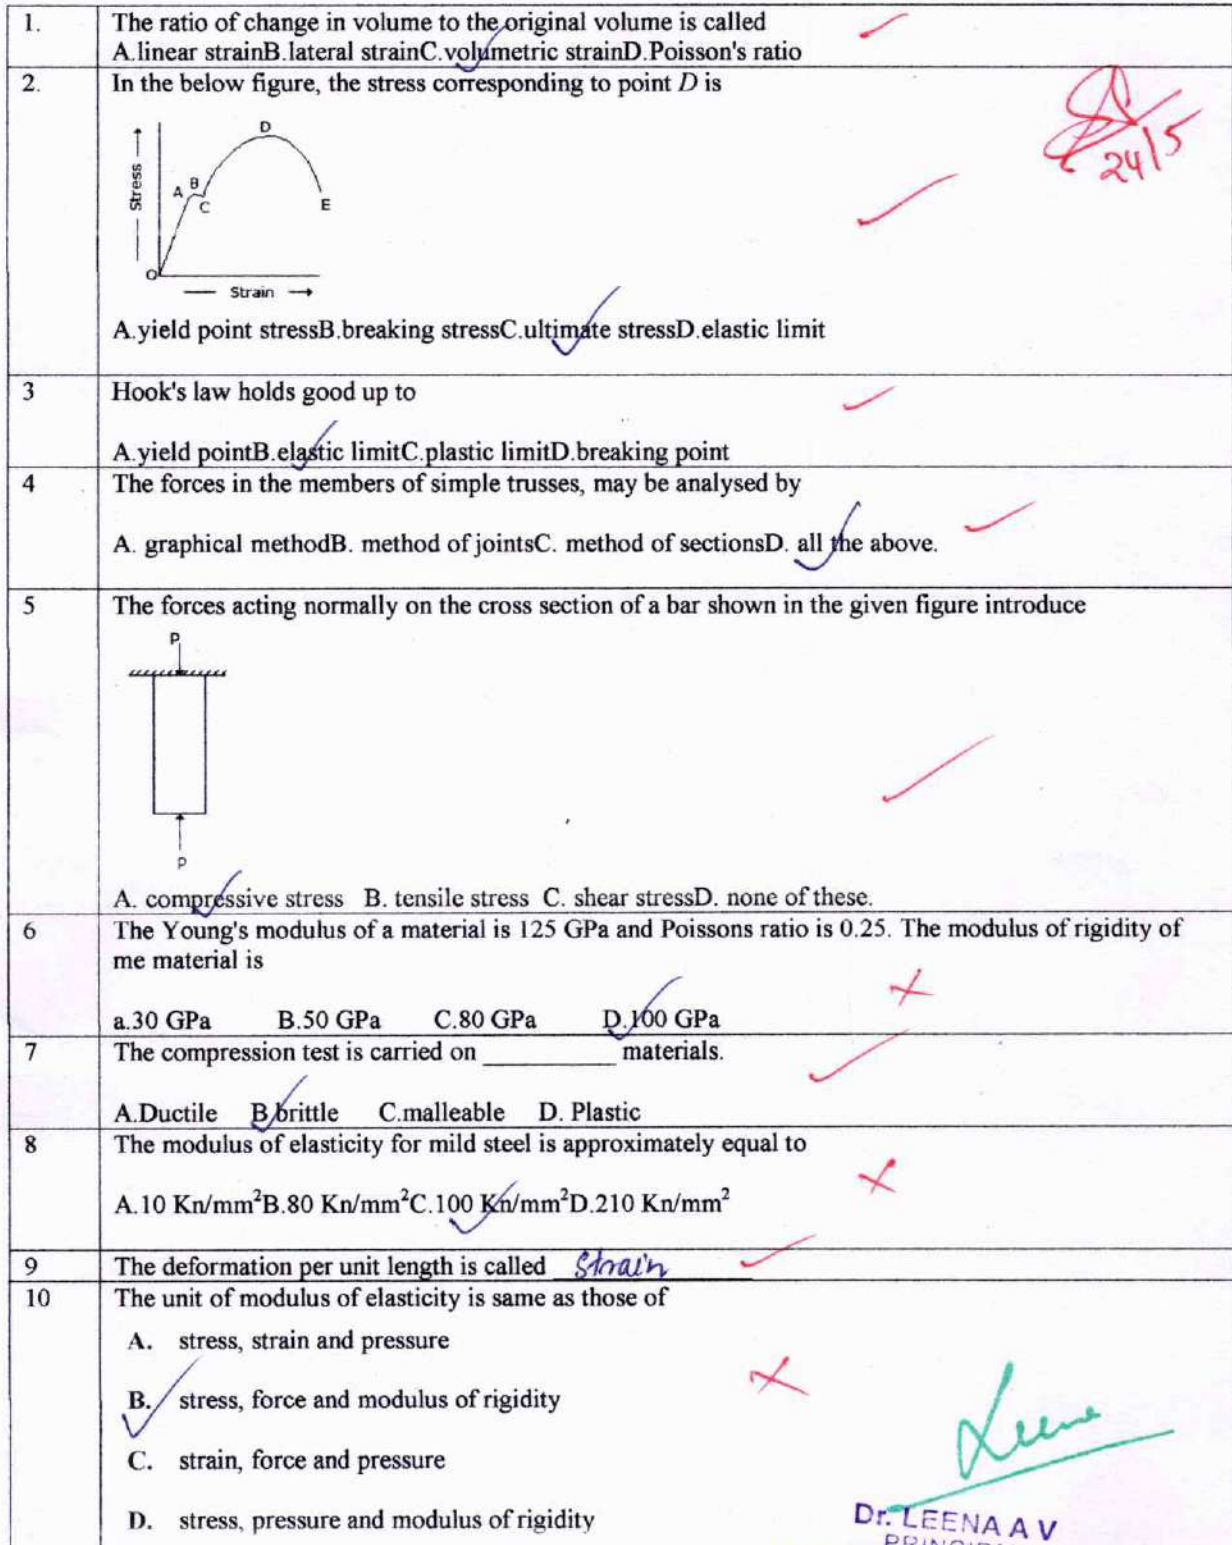 1. The ratio of change in volume to the original volume is called
A.linear strainB.lateral strainC.volumetric strainD.Poisson's ratio
2. In the below figure, the stress corresponding to point D is
24/5
Stress
A
B
C
D
E
O
Strain
A.yield point stressB.breaking stressC.ultimate stressD.elastic limit
3 Hook's law holds good up to
A.yield pointB.elastic limitC.plastic limitD.breaking point
4 The forces in the members of simple trusses, may be analysed by
A. graphical methodB. method of jointsC. method of sectionsD. all the above.
5 The forces acting normally on the cross section of a bar shown in the given figure introduce
P
P
A. compressive stress B. tensile stress C. shear stressD. none of these.
6 The Young's modulus of a material is 125 GPa and Poissons ratio is 0.25. The modulus of rigidity of
me material is
a.30 GPa B.50 GPa C.80 GPa D.100 GPa
7 The compression test is carried on __________ materials.
A.Ductile B.brittle C.malleable D. Plastic
8 The modulus of elasticity for mild steel is approximately equal to
A.10 Kn/mm²B.80 Kn/mm²C.100 Kn/mm²D.210 Kn/mm²
9 The deformation per unit length is called Strain
10 The unit of modulus of elasticity is same as those of
A. stress, strain and pressure
B. stress, force and modulus of rigidity
C. strain, force and pressure
D. stress, pressure and modulus of rigidity
Leena
Dr. LEENA A V